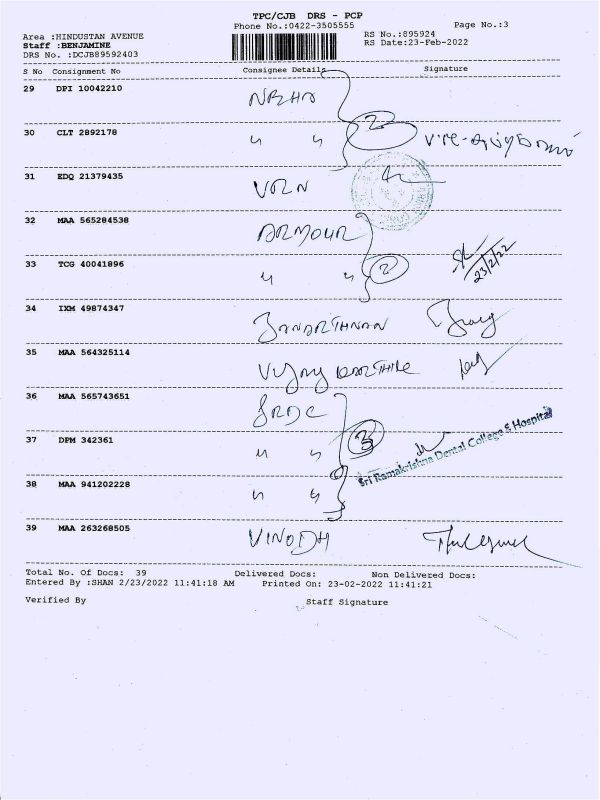 TPC/CJB DRS - PCP
Phone No.:0422-3505555
Page No.:3
Area :HINDUSTAN AVENUE
RS No.:895924
Staff :BENJAMINE
RS Date:23-Feb-2022
DRS No. :DCJB89592403
S No Consignment No Consignee Details Signature
29 DPI 10042210
30 CLT 2892178 " " 2
31 EDQ 21379435
32 MAA 565284538 ARMOUR
33 TCG 40041896 " " 2 23/2/22
34 IXM 49874347 JANARTHNAN
35 MAA 564325114 VIJAY KARTHIK
36 MAA 565743651 SRDC
37 DPM 342361 " " 3
Sri Ramakrishna Dental College & Hospital
38 MAA 941202228 " "
39 MAA 263268505 VINODH
Total No. Of Docs: 39 Delivered Docs: Non Delivered Docs:
Entered By :SHAN 2/23/2022 11:41:18 AM Printed On: 23-02-2022 11:41:21
Verified By Staff Signature